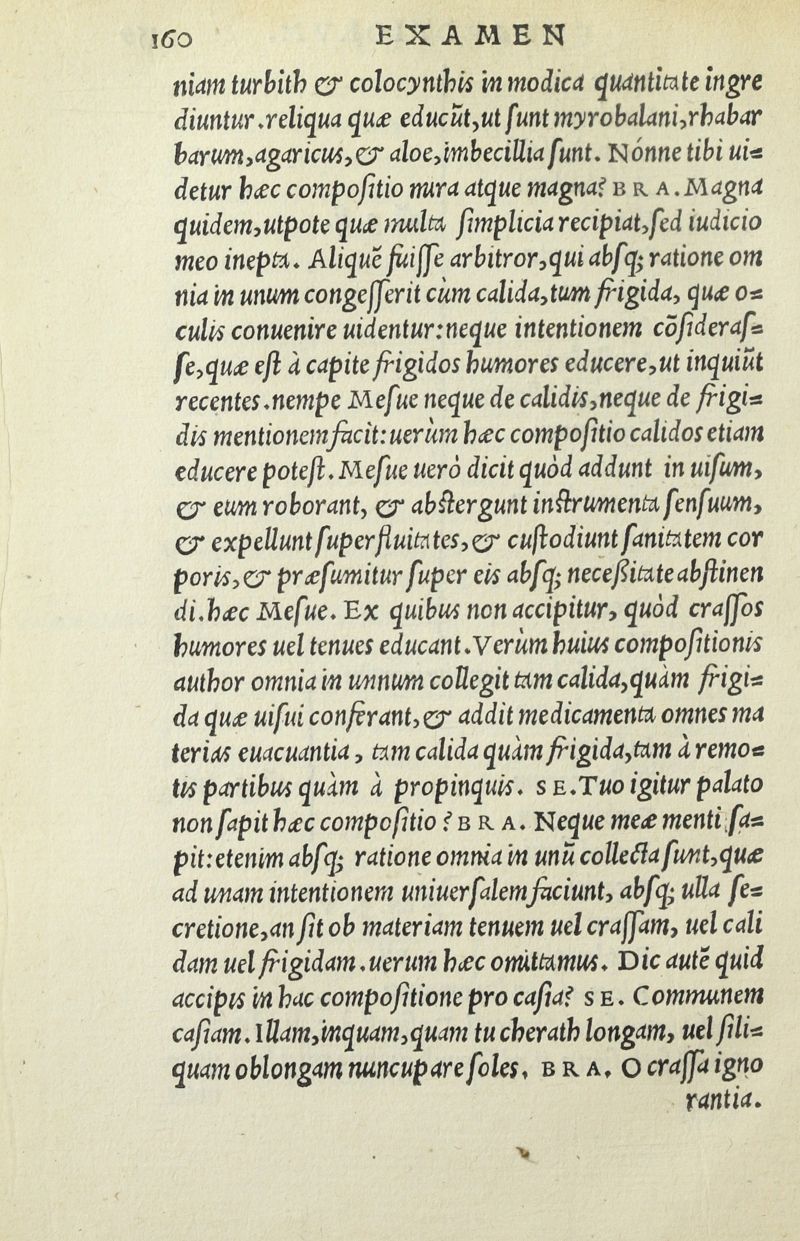 160 EXAMEN
niam turbith & colocynthis in modica quantitate ingre
diuntur.reliqua quæ educũt,ut sunt myrobalani,rhabar
barum,agaricus,& aloe,imbecillia sunt. Nónne tibi ui=
detur hæc compositio mira atque magna? BRA. Magna
quidem,utpote quæ multa simplicia recipiat,sed iudicio
meo inepta. Aliquẽ fuisse arbitror,qui absq; ratione om
nia in unum congesserit cùm calida,tum frigida, quæ o=
culis conuenire uidentur:neque intentionem cõsideras=
se,quæ est à capite frigidos humores educere,ut inquiũt
recentes.nempe Mesue neque de calidis,neque de frigi=
dis mentionem facit:uerùm hæc compositio calidos etiam
educere potest. Mesue uerò dicit quòd addunt in uisum,
& eum roborant, & abstergunt instrumenta sensuum,
& expellunt superfluitates,& custodiunt sanitatem cor
poris,& præsumitur super eis absq; necessitate abstinen
di.hæc Mesue. Ex quibus non accipitur, quòd crassos
humores uel tenues educant. Verùm huius compositionis
author omnia in unnum collegit tam calida,quàm frigi=
da quæ uisui conferant,& addit medicamenta omnes ma
terias euacuantia, tam calida quàm frigida,tam à remo=
tis partibus quàm à propinquis. SE. Tuo igitur palato
non sapit hæc compositio? BRA. Neque meæ menti sa=
pit:etenim absq; ratione omnia in unũ collecta sunt,quæ
ad unam intentionem uniuersalem faciunt, absq; ulla se=
cretione,an sit ob materiam tenuem uel crassam, uel cali
dam uel frigidam.uerum hæc omittamus. Dic autẽ quid
accipis in hac compositione pro casia? SE. Communem
casiam. Illam,inquam,quam tu cherath longam, uel sili=
quam oblongam nuncupare soles. BRA. O crassa igno
rantia.